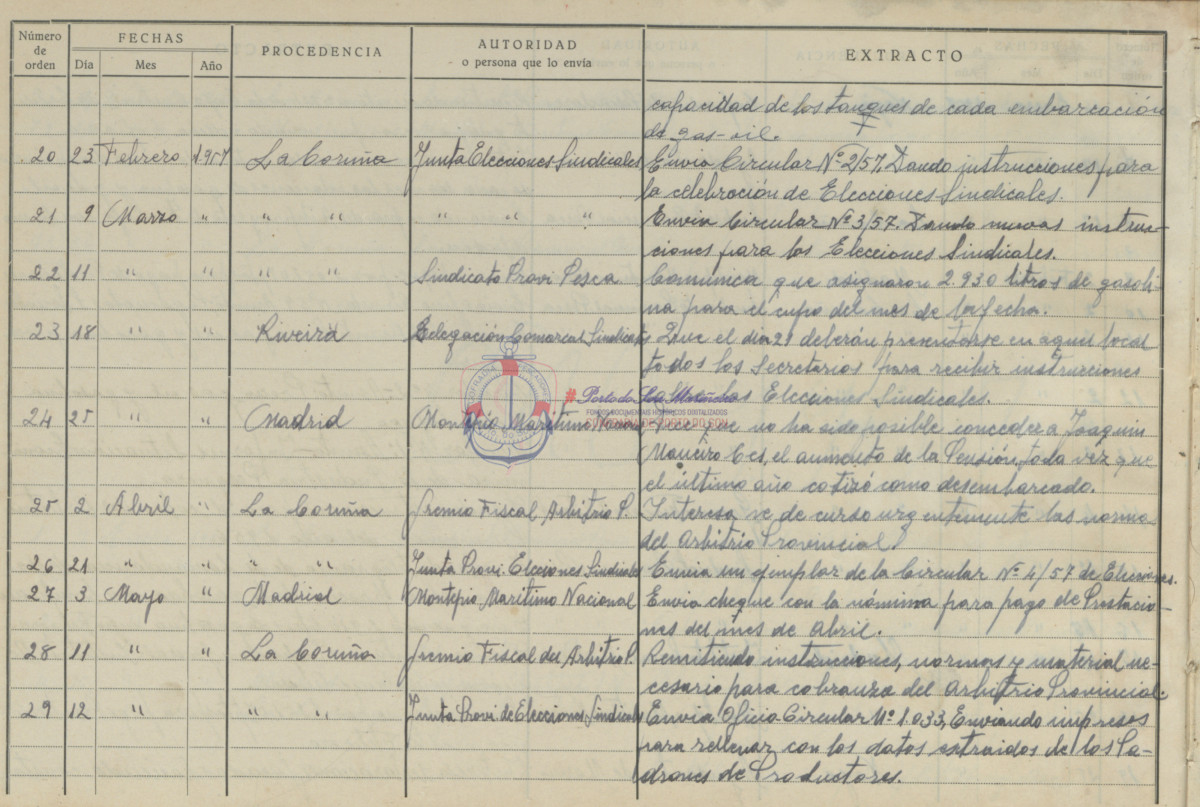 Número de orden FECHAS PROCEDENCIA AUTORIDAD o persona que lo envía EXTRACTO
Día Mes Año
capacidad de los tanques de cada embarcación
de gas-oil.
20 23 Febrero 1957 La Coruña Junta Elecciones Sindicales Envia Circular Nº 2/57, Dando instrucciones para
la celebración de Elecciones Sindicales.
21 9 Marzo " " " " " " Envia Circular Nº 3/57. Dando nuevas instruc-
ciones para las Elecciones Sindicales.
22 11 " " " " Sindicato Provi Pesca Comunica que asignaron 2.930 litros de gasoli-
na para el cupo del mes de la fecha.
23 18 " " Riveira Delegación Comarcal Sindicatos Que el dia 21 deberan presentarse en aquel local
todos los Secretarios para recibir instrucciones
las Elecciones Sindicales.
24 25 " " Madrid Montepio Maritimo que no ha sido posible conceder a Joaquin
Maneiro Ces, el aumento de la Pensión, toda vez que
el último año cotizó como desembarcado.
25 2 Abril " La Coruña Gremio Fiscal Arbitrio P. Interesa se de curso urgentemente las norma
del Arbitrio Provincial.
26 21 " " " " Junta Provi. Elecciones Sindicales Envia un ejemplar de la Circular Nº 4/57 de Elecciones.
27 3 Mayo " Madrid Montepio Maritimo Nacional Envia cheque con la nómina para pago de Prestacio-
nes del mes de Abril.
28 11 " " La Coruña Gremio Fiscal del Arbitrio P. Remitiendo instrucciones, normas y material ne-
cesario para cobranza del Arbitrio Provincial.
29 12 " " " " Junta Provi de Elecciones Sindicales Envia Oficio-Circular Nº 1.033, Enviando impresos
para rellenar con los datos extraidos de los Pa-
drones de Productores.
#Porto do Son Mariñeiro
FONDOS DOCUMENTAIS HISTÓRICOS DIXITALIZADOS